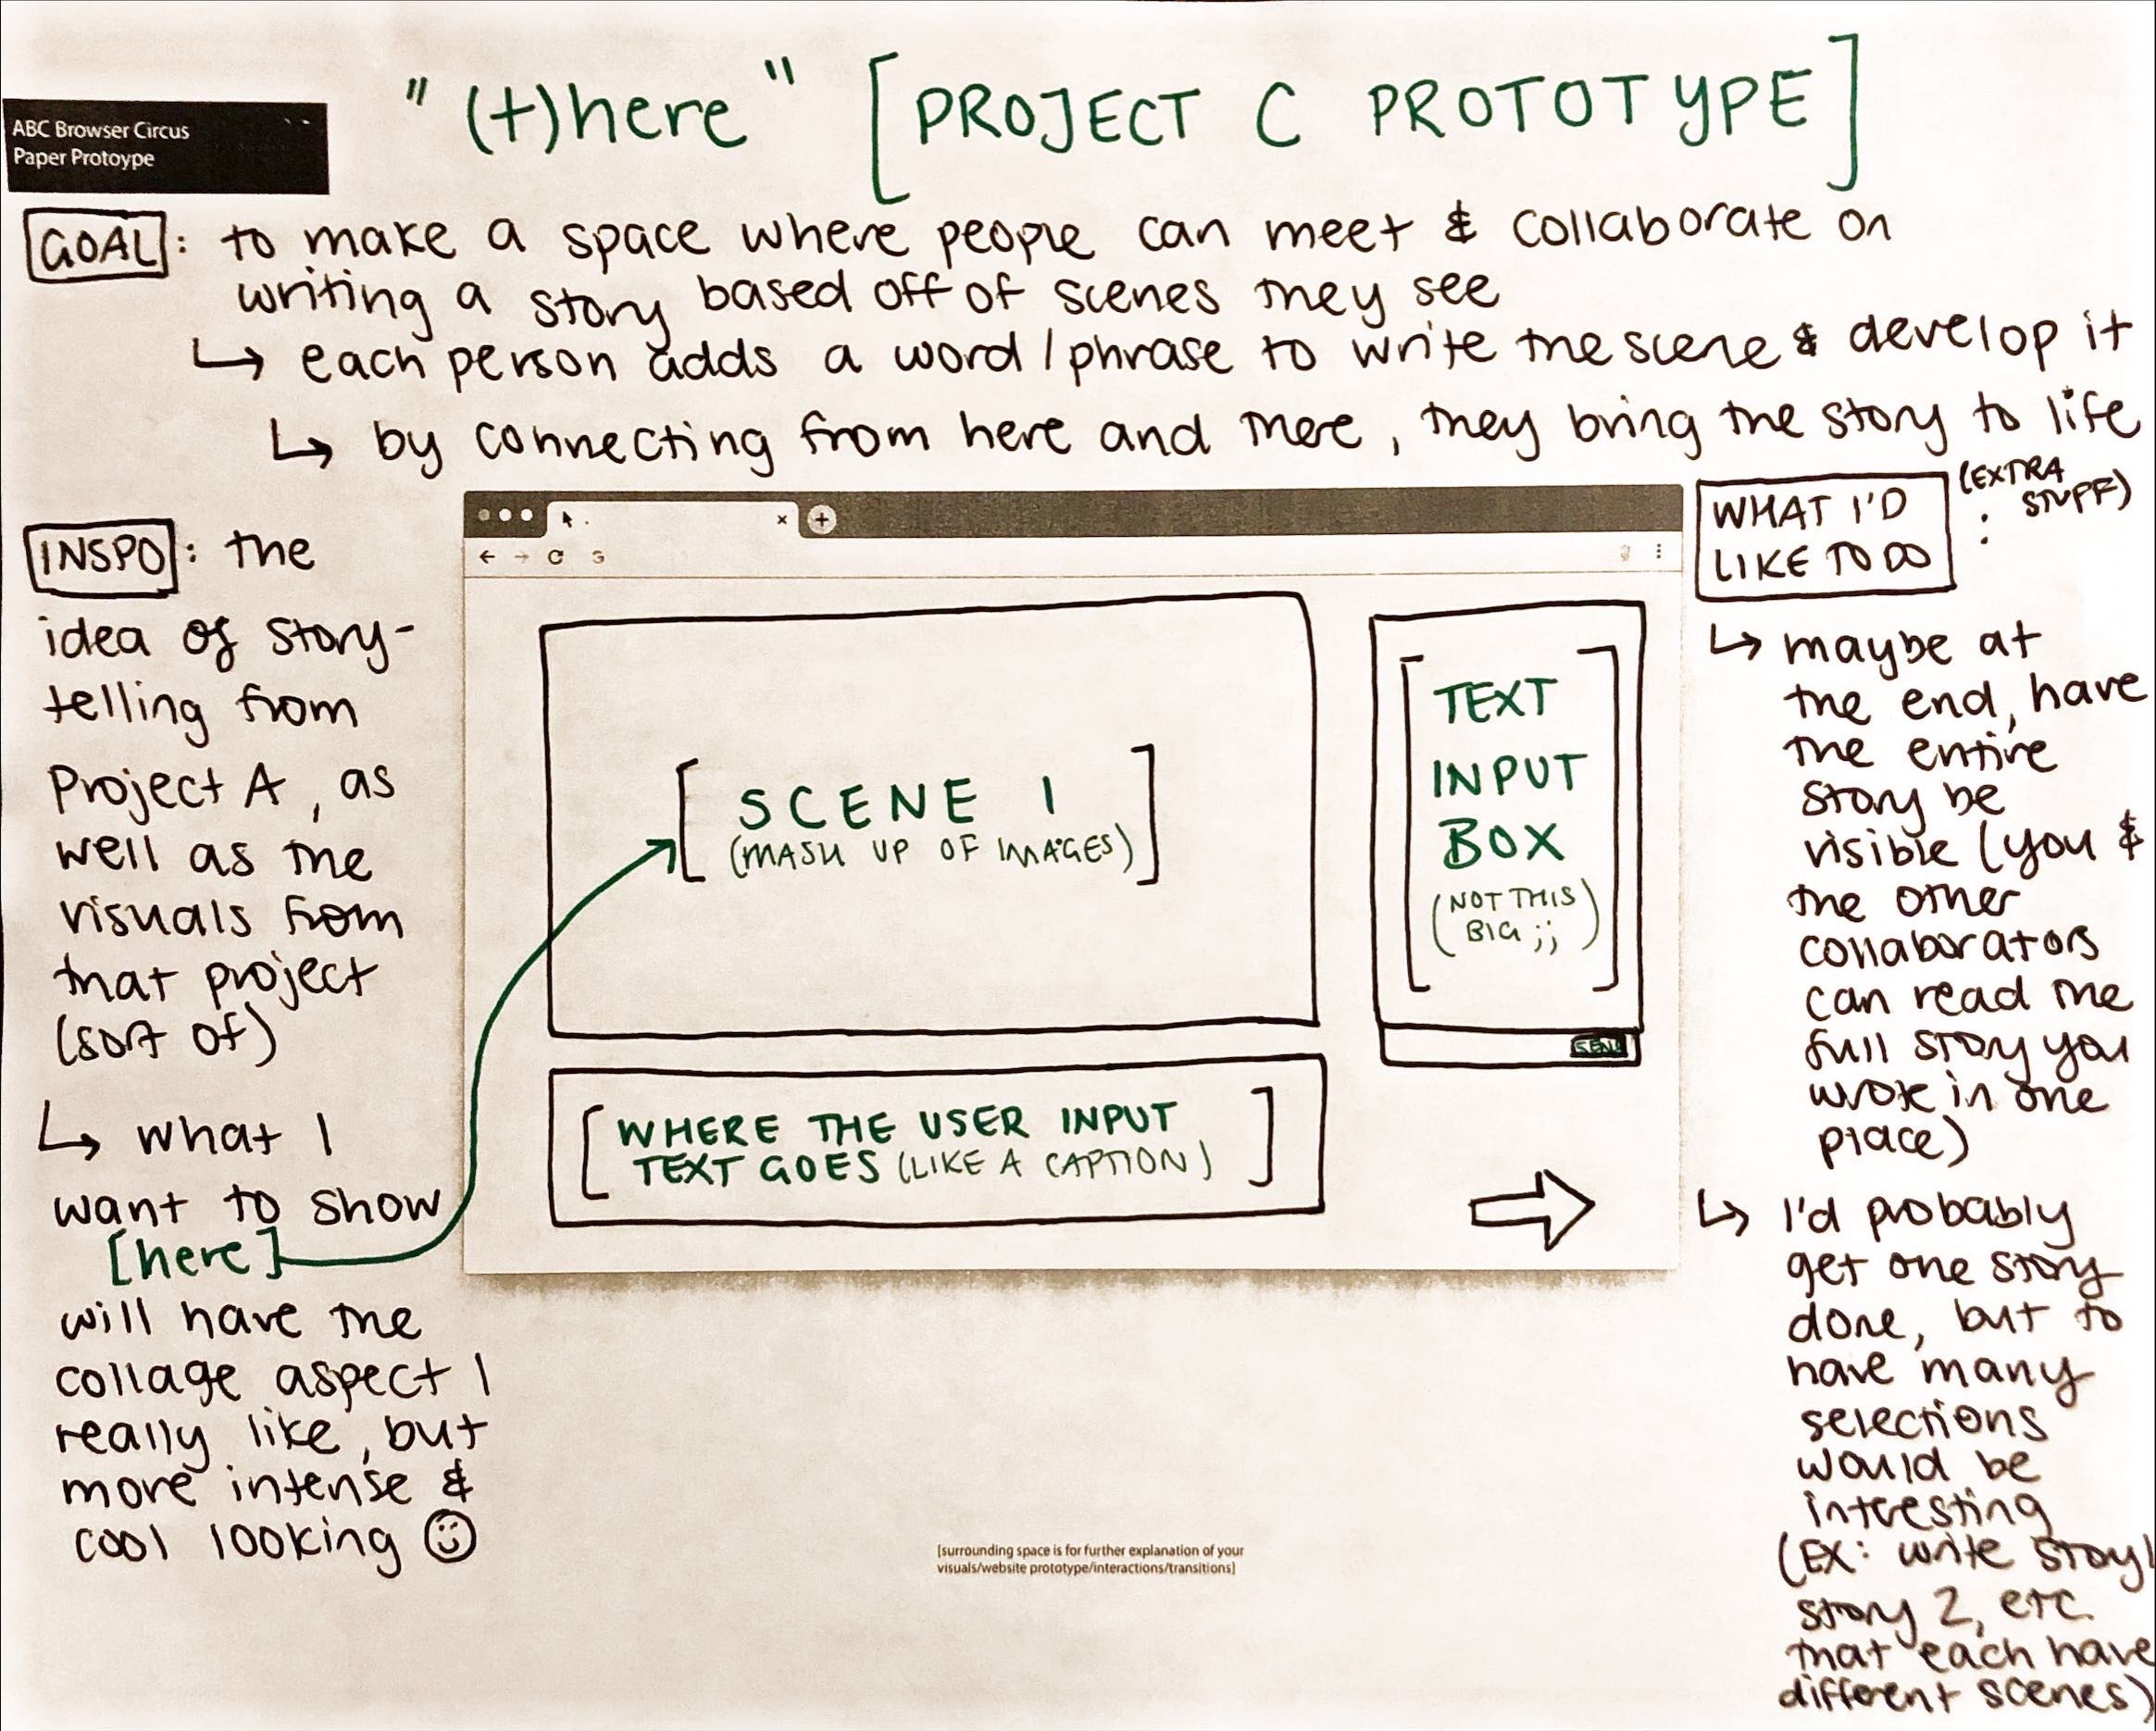 "(t)here" [PROJECT C PROTOTYPE]
ABC Browser Circus
Paper Protoype
GOAL: to make a space where people can meet & collaborate on
writing a story based off of scenes they see
↳ each person adds a word/phrase to write the scene & develop it
↳ by connecting from here and there, they bring the story to life
INSPO: the
idea of story-
telling from
Project A, as
well as the
visuals from
that project
(sort of)
↳ what I
want to show
[here]
will have the
collage aspect I
really like, but
more intense &
cool looking ☺
[SCENE 1
(MASH UP OF IMAGES)]
[TEXT
INPUT
BOX
(NOT THIS
BIG ;;)]
SEND
[WHERE THE USER INPUT
TEXT GOES (LIKE A CAPTION)]
WHAT I'D
LIKE TO DO
(EXTRA
STUFF)
:
↳ maybe at
the end, have
the entire
story be
visible (you &
the other
collaborators
can read the
full story you
wrote in one
place)
↳ I'd probably
get one story
done, but to
have many
selections
would be
interesting
(EX: write story 1
story 2, etc.
that each have
different scenes)
[surrounding space is for further explanation of your
visuals/website prototype/interactions/transitions]